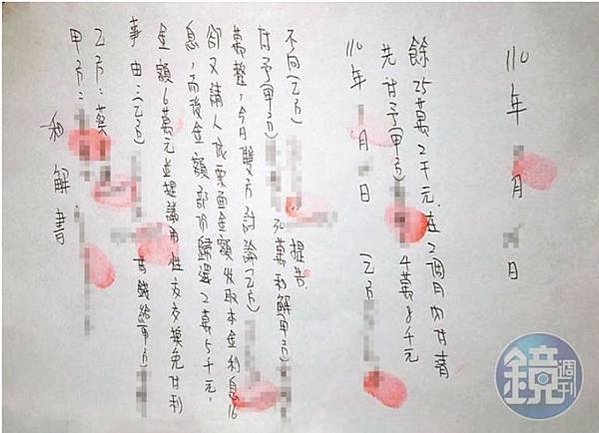 和解書
甲方：
乙方：蔡
事由：(乙方) 錢給(甲方)
金額6萬元並提議用性交交換免付利
息，而後金額部份歸還2萬5千元，
卻又請人依票面金額收取本金利息16
萬整，今日雙方討論(乙方)
付予(甲方) 30萬和解(甲方)
不向(乙方) 提告.
110年 月 日 乙方
先付予(甲方) 4萬8千元
餘25萬2千元.在2個月內付清
110年 月 日
鏡週刊